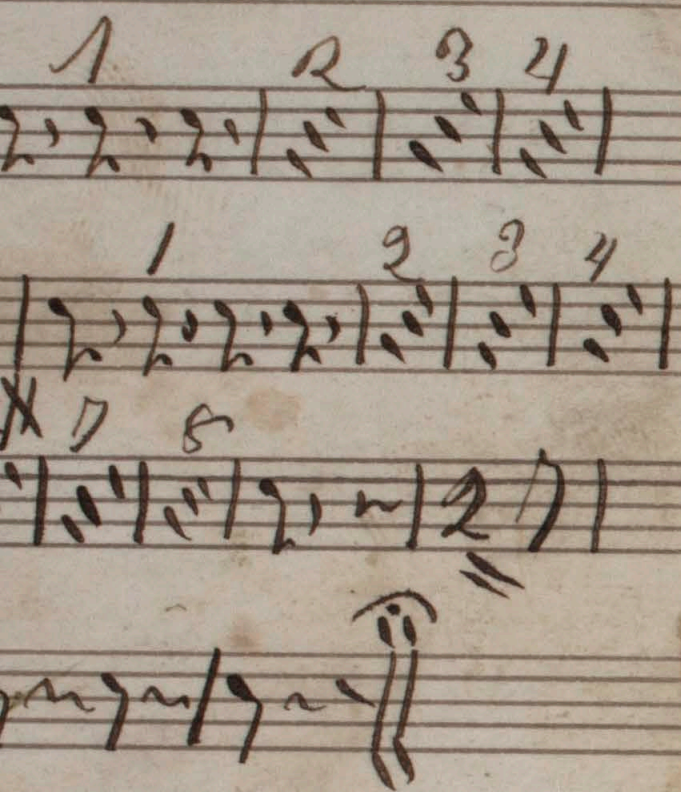 1 2 3 4
1 2 3 4
7 8
27